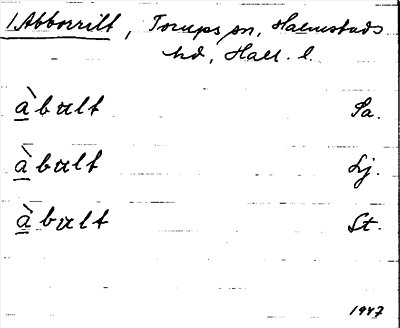 1 Abborrilt, Torups sn, Halmstads
hd, Hall. l.
àbult Sa.
àbult Lj.
àbult St.
1947